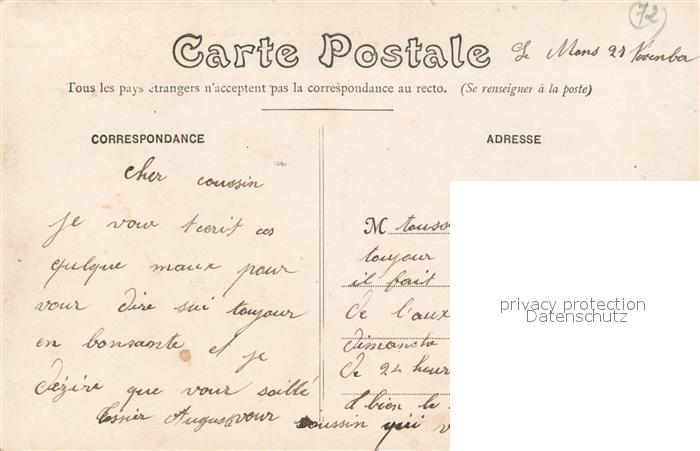 72
Carte Postale
Le Mans 27 Novenber
Tous les pays étrangers n'acceptent pas la correspondance au recto. (Se renseigner à la poste)
CORRESPONDANCE
cher coussin
je vous écrit ces
quelque maux pour
vour dire toujour
en bonsante et je
dézire que vour
Auguste vour coussin qui v
ADRESSE
M touss
toujour
il fait
de l'aux
dimanche
De 24 heur
bien le
privacy protection
Datenschutz